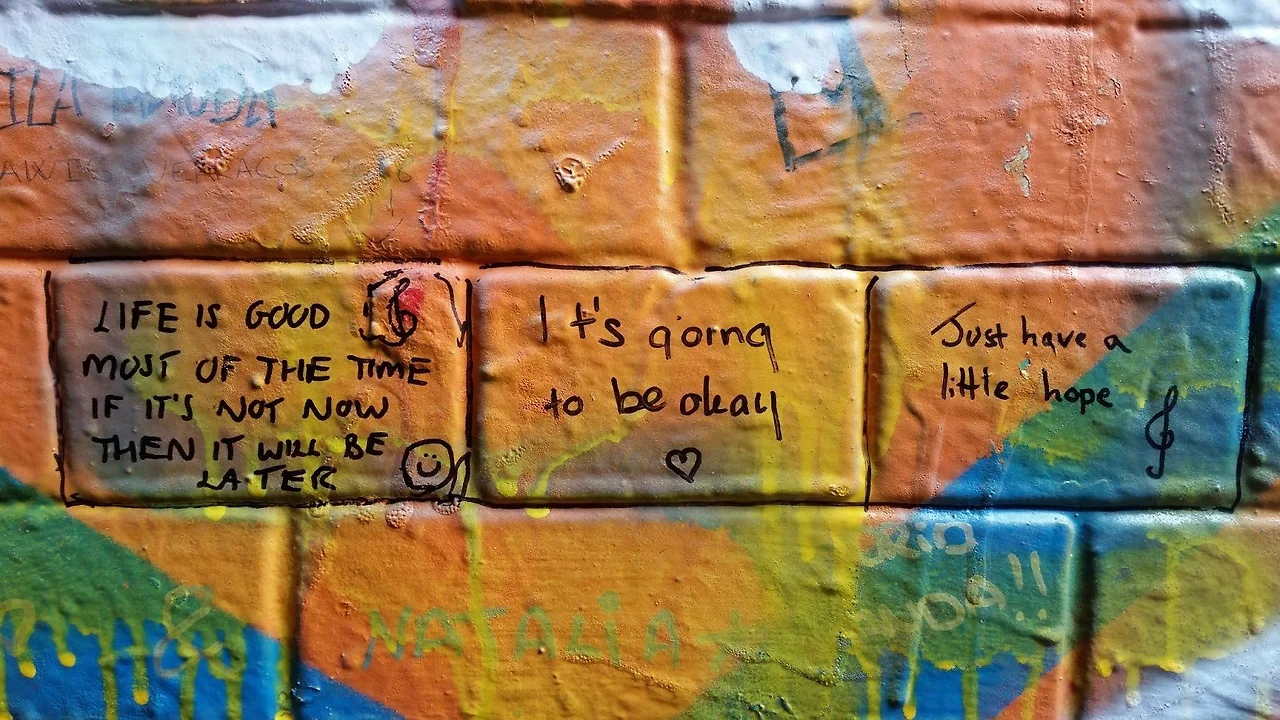 LIFE IS GOOD
MOST OF THE TIME
IF IT'S NOT NOW
THEN IT WILL BE
LATER
It's going
to be okay
Just have a
little hope
NATALIA